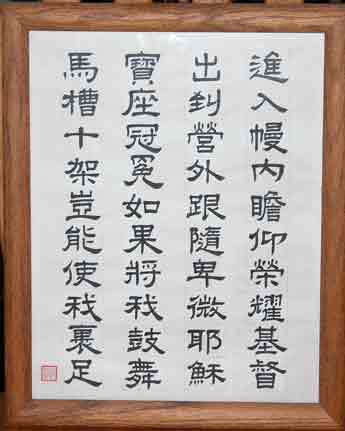 進入幔內瞻仰榮耀基督
出到營外跟隨卑微耶穌
寶座冠冕如果將我鼓舞
馬槽十架豈能使我裹足